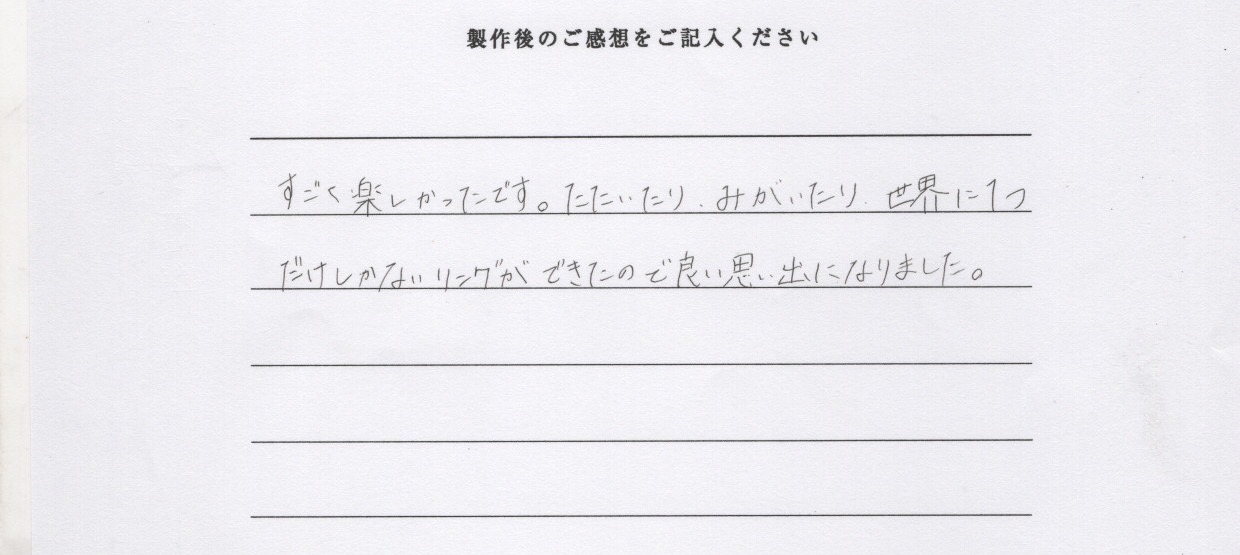 製作後のご感想をご記入ください
すごく楽しかったです。たたいたり、みがいたり、世界に1つ
だけしかないリングができたので良い思い出になりました。